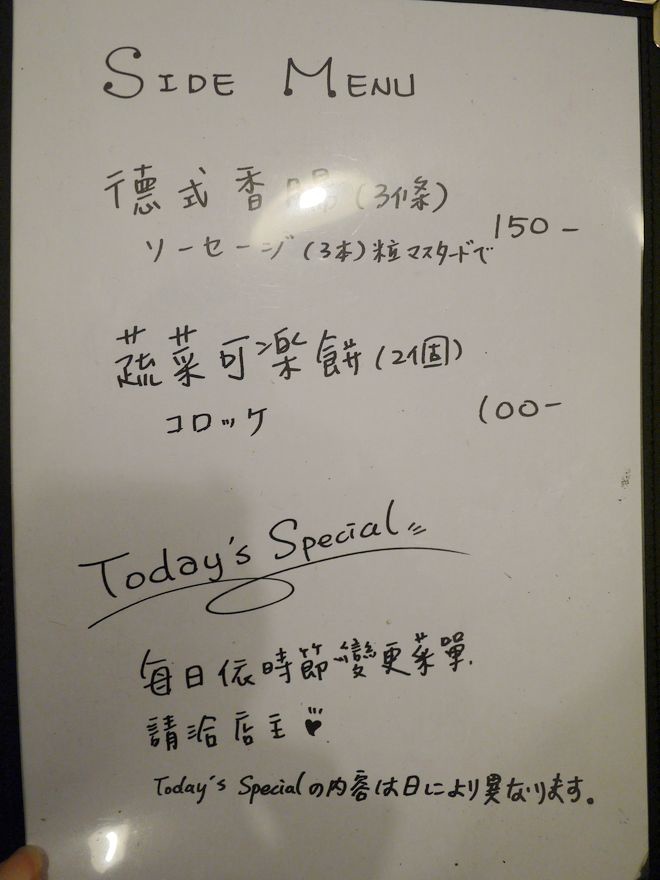 SIDE MENU
德式香腸(3條)
ソーセージ(3本)粒マスタードで
150-
蔬菜可樂餅(2個)
コロッケ
100-
Today's Special
每日依時節變更菜單.
請洽店主
Today's Specialの内容は日により異なります。